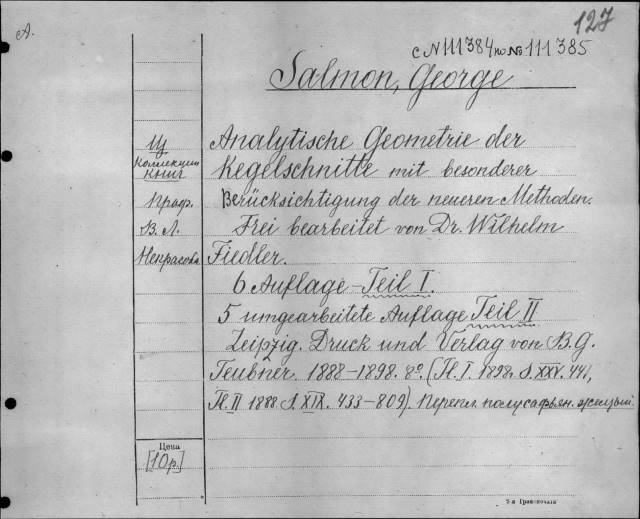 А.
127
с № 111384 по № 111385
Salmon, George
Из Коллекции книг Проф. В. Л. Некрасова
Analytische Geometrie der
Kegelschnitte mit besonderer
Berücksichtigung der neueren Methoden.
Frei bearbeitet von Dr. Wilhelm
Fiedler.
6 Auflage – Teil I.
5 umgearbeitete Auflage Teil II
Leipzig. Druck und Verlag von B. G.
Teubner. 1888–1898. 8º. (Tl. I. 1898. S. XXV. 441,
Tl. II 1888. S. XIX. 433–809). Перепл. полусафьян. желтый.
Цена
[10 р.]